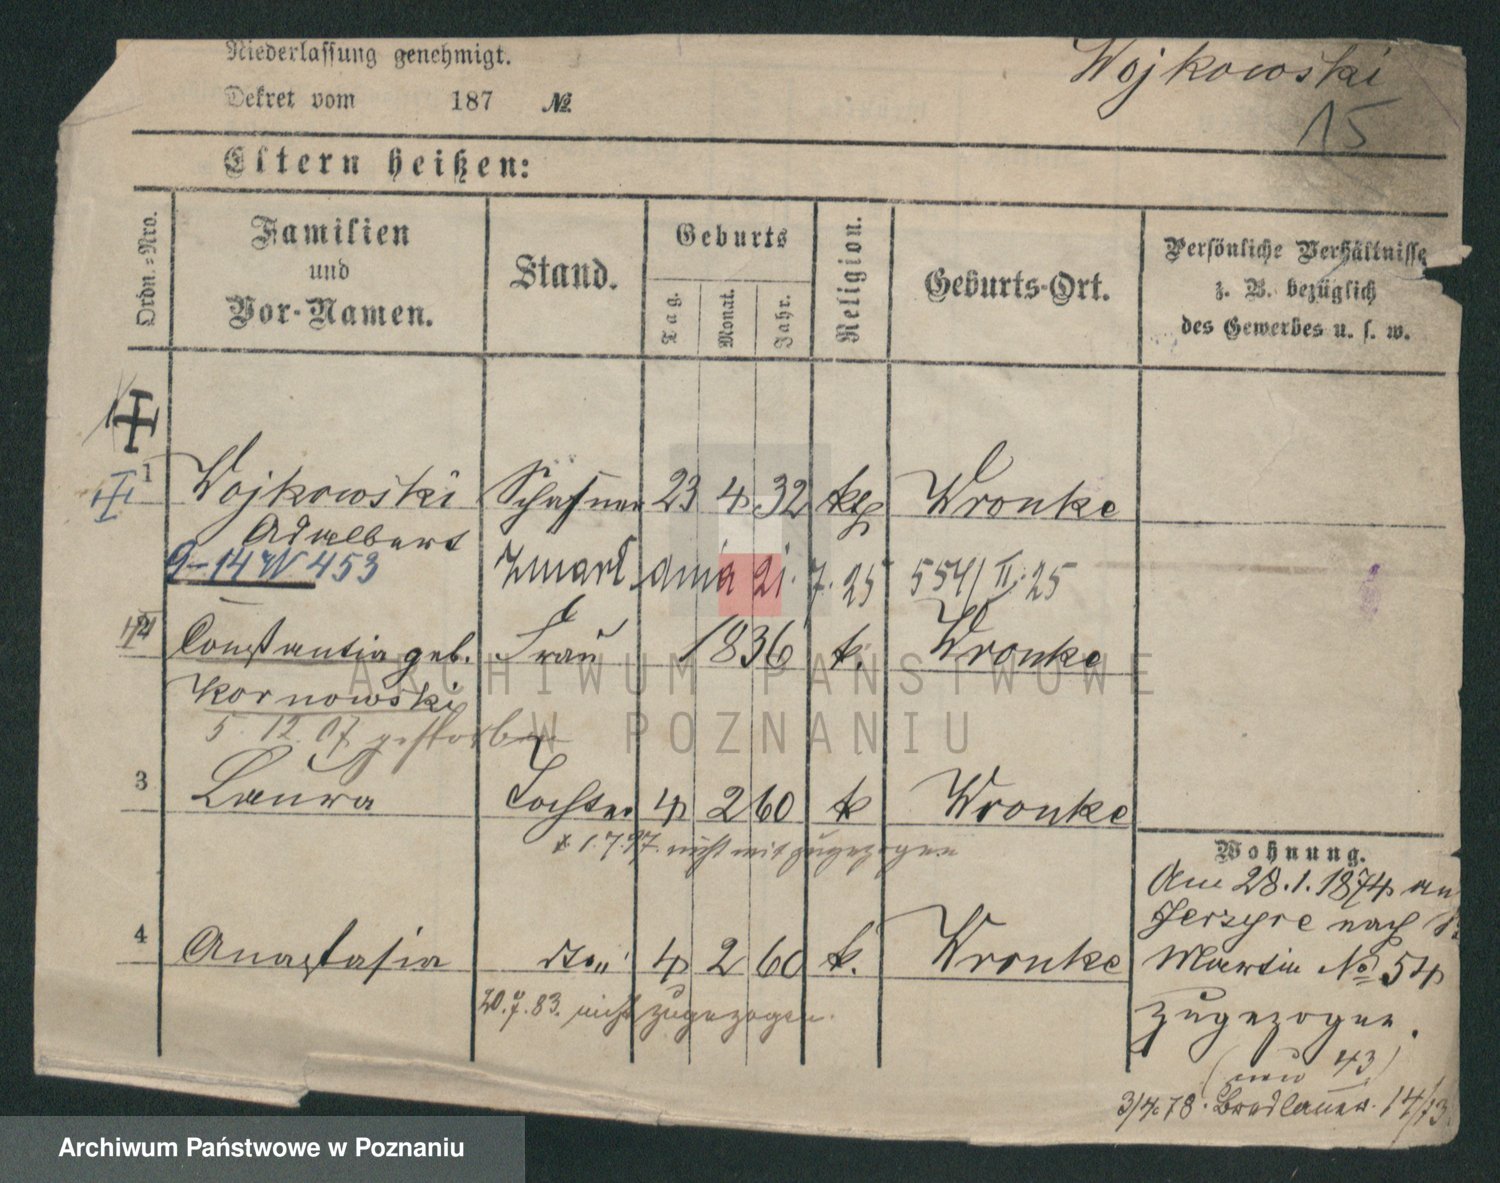 Niederlassung genehmigt.
Wojkowski
Dekret vom 187 №
15
Eltern heißen:
Ordn.-Nro.
Familien und Vor-Namen.
Stand.
Geburts
Tag. Monat. Jahr.
Religion.
Geburts-Ort.
Persönliche Verhältnisse
z. B. bezüglich
des Gewerbes u. s. w.
1 Wojkowski Schaffner 23 4 32 kth Wronke
Adalbert
9-14 W 453 zmarł dnia 21. 7. 25 554/II.25
2 Constantia geb. Frau 1836 k. Wronke
Kornowski
5. 12. 07 gestorben
3 Laura Tochter 4 2 60 k Wronke
1.7.97. nicht mit zugezogen
4 Anastasia dto 4 2 60 k. Wronke
20.7.83. nicht zugezogen.
Wohnung.
Am 28.1.1874 an
Jerzyce nach St.
Martin No 54
zugezogen.
(neu 43)
3/4.78. Breslauer. 14/13
ARCHIWUM PAŃSTWOWE
W POZNANIU
Archiwum Państwowe w Poznaniu